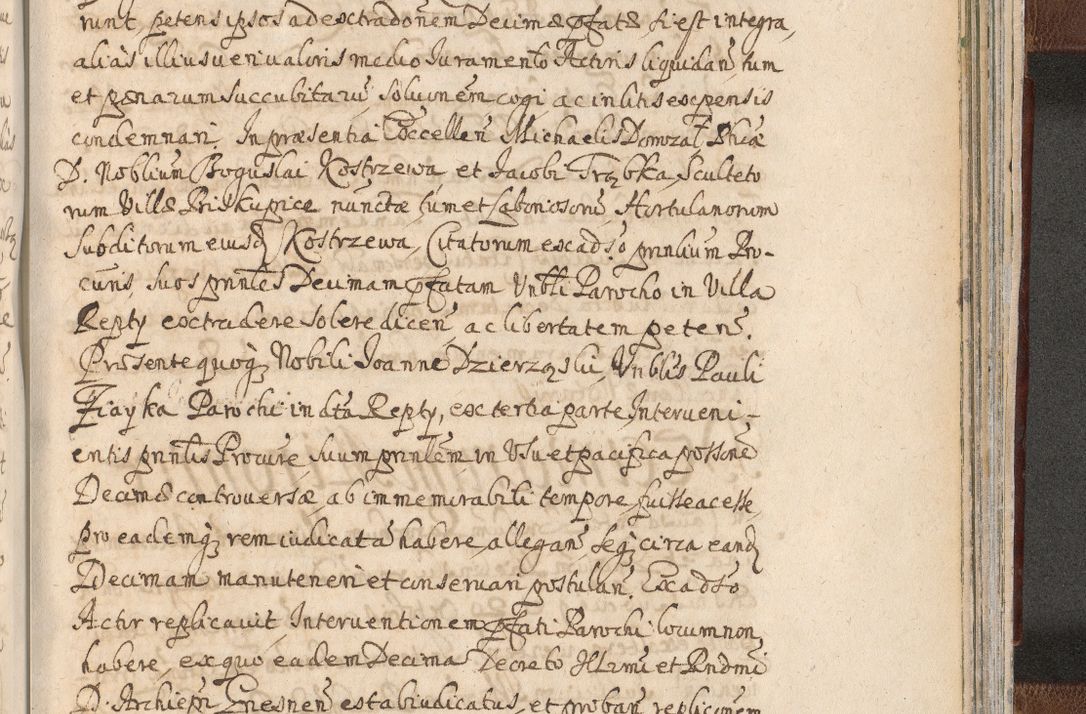 runt, petens ipsos ad extradonem Decimæ pfatæ si est integra,
aliàs illius veri valoris medio Iuramento Actoris liquidan tum
et pœnarum succubitarū solvonem cogi ac in litis expensis
condemnari. In præsentia Excellen Michaelis Domozał Phiæ
D. Noblium Boguslai Kostrzewa et Iacobi Trąbka Sculteto
rum Villæ Priskupice nunctæ tum et Laboriosorū Hortulanorum
subditorum eiusd Kostrzewa, Citatorum ex adso prinlium Pro-
curis, suos prinles Decimam pfatam Vnbli Parocho in Villa
Repty extradere solere dicen ac libertatem peten.
Præsente quoq Nobili Ioanne Dzierząski, Vnblis Pauli
Ziayka Parochi in dta Repty, ex tertia parte Interveni-
entis prinlis Procure suum prinlem in Usu et pacifica possone
Decimæ controversæ ab immemorabili tempore fuisse ac esse,
pro eademq rem iudicatā habere allegan seq circa eand
Decimam manuteneri et conservari postulan. Ex adso
Actor replicavit Interventionem pfati Parochi locum non
habere, ex quo eadem Decima Decreto Illrmi et Rndmi
D. Archiepi Gnesnen est abiudicatus, et proban repliconem